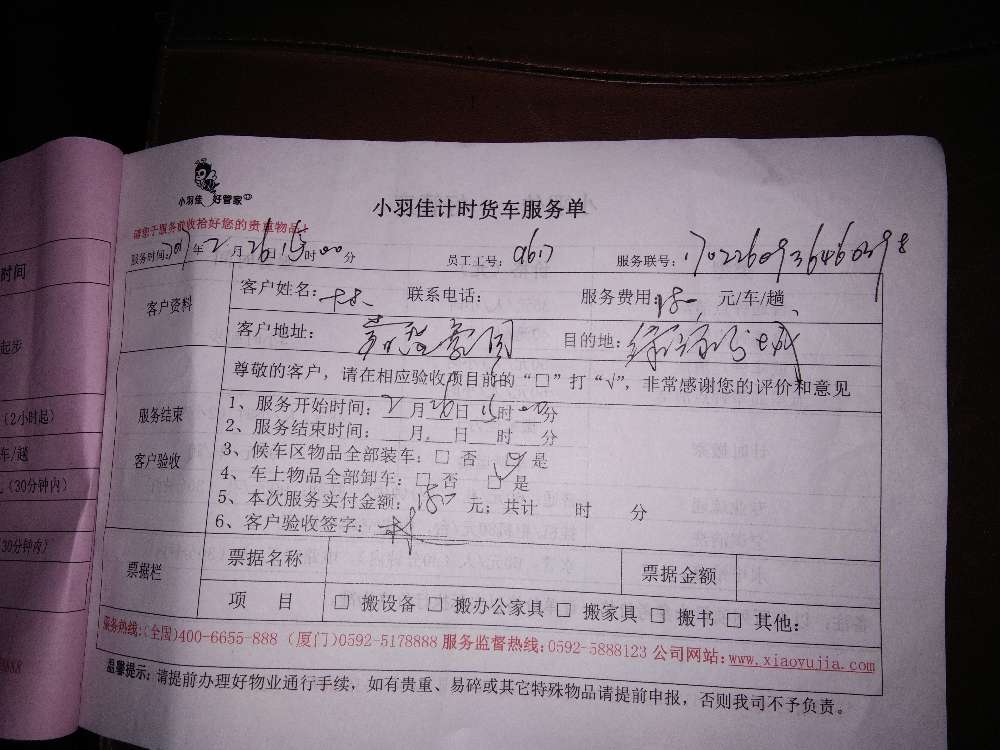 小羽佳 好管家
小羽佳计时货车服务单
请您于服务前收拾好您的贵重物品!
服务时间:2017年2月26日15时00分 员工工号: 服务联号:
时间
客户资料
客户姓名:林 联系电话: 服务费用:180 元/车/趟
客户地址: 目的地:
起步
尊敬的客户，请在相应验收项目前的“□”打“√”，非常感谢您的评价和意见
(2小时起)
车/趟
(30分钟内)
30分钟内)
服务结束
客户验收
1、服务开始时间:2月26日15时00分
2、服务结束时间:___月___日___时___分
3、候车区物品全部装车:□ 否 ☑ 是
4、车上物品全部卸车:□ 否 ☑ 是
5、本次服务实付金额:180 元; 共计 时 分
6、客户验收签字:林
票据栏
票据名称 票据金额
项 目 □ 搬设备 □ 搬办公家具 □ 搬家具 □ 搬书 □ 其他:
服务热线:(全国)400-6655-888 (厦门)0592-5178888 服务监督热线:0592-5888123 公司网站:www.xiaoyujia.com
温馨提示:请提前办理好物业通行手续，如有贵重、易碎或其它特殊物品请提前申报，否则我司不予负责。